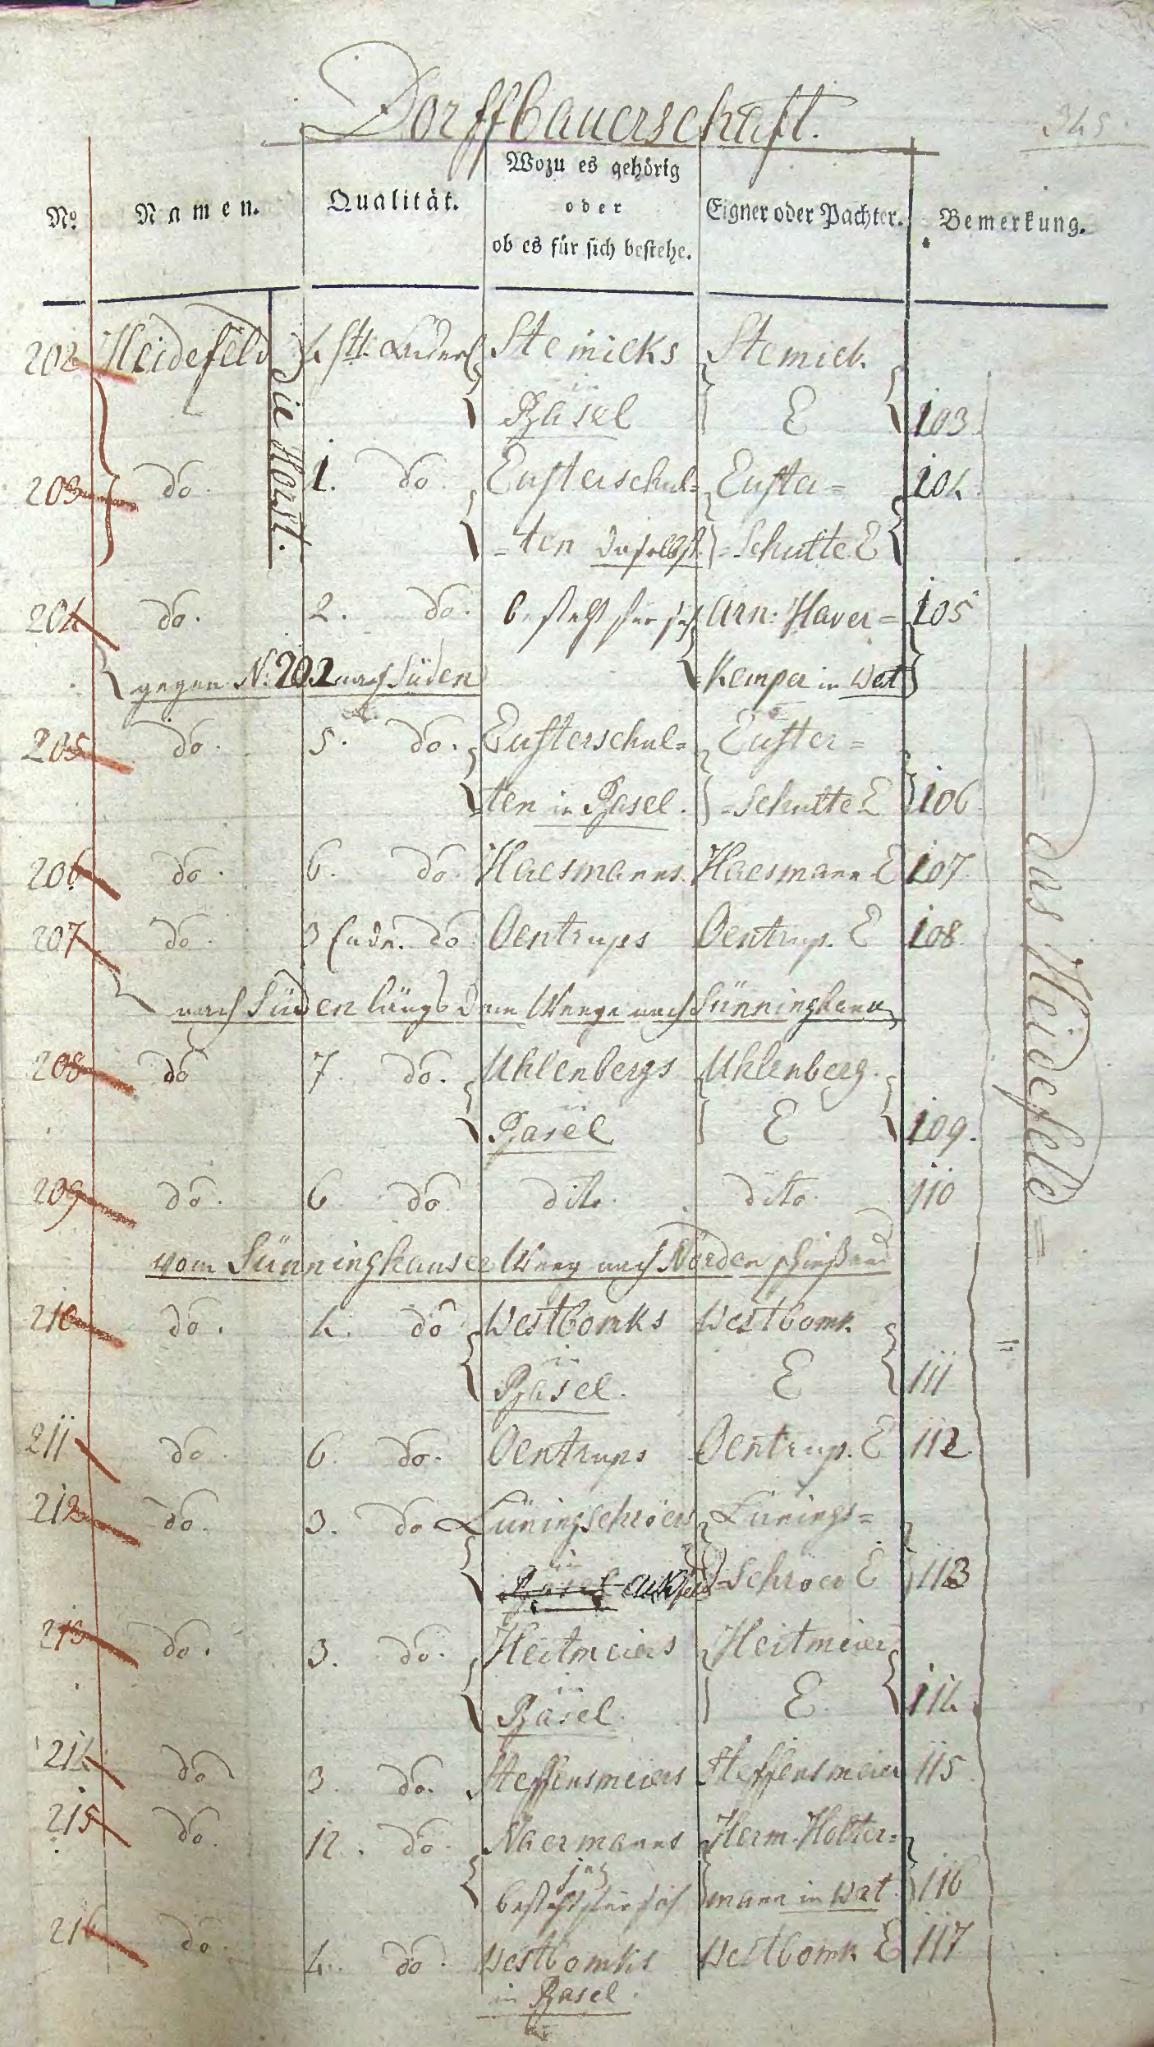 Dorffbauerschaft.
345
No. Namen. Qualität. Wozu es gehörig oder ob es für sich bestehe. Eigner oder Pachter. Bemerkung.
202 Heidefeld 4 Stk. Länderei Steinicks Steinick.
in Basel E 103
die Horst.
203 do. 1. do. Eusterschul= Euster= 104
=ten daselbst. =Schulte E
204 do. 2. do. besteht für sich Arn: Haver= 105
gegen No. 202 nach Süden =Kemper in Wat
205 do. 5. do. Eusterschul= Euster=
ten in Basel. =Schulte E 106
206 do. 6. do. Haesmanns. Haesmann E 107
207 do. 3 do. Oentrups Oentrup. E 108
nach Süden längs dem Weege nach Sünninghausen
208 do 7. do. Uhlenbergs Uhlenberg.
in Basel E 109.
das Heidefeld
209 do. 6 do dito. dito. 110
vom Sünninghauser Weeg nach Norden schießend
210 do. 4. do Westbomks Westbomk
in Basel. E 111
211 do. 6. do. Oentrups Oentrup. E 112
212 do. 3. do Lüningschröers Lünings=
in Basel =Schröer E 113
213 do. 3. do. Heitmeiers Heitmeier
in Basel. E 114.
214 do 3. do. Steffensmeiers Steffensmeier 115
215 do. 12. do. Naermanns Herm. Holter=
jetz
besteht für sich mann in Wat. 116
216 do. 4. do. Westbomks Westbomk E 117
in Basel.